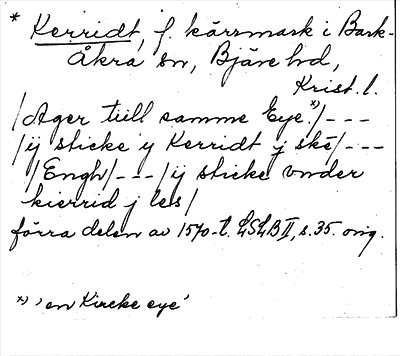 * Kerridt, f. kärrmark i Bark-
Åkra sn, Bjäre hd,
Krist. l.
/Ager tiill samme Eye x)/---
/ij sticke y Kerridt j ské/---
/Engh/---/ij sticke vnder
kierrid j les/
förra delen av 1570-t. LSLB II, s. 35. orig.
x) 'en Kircke eye'